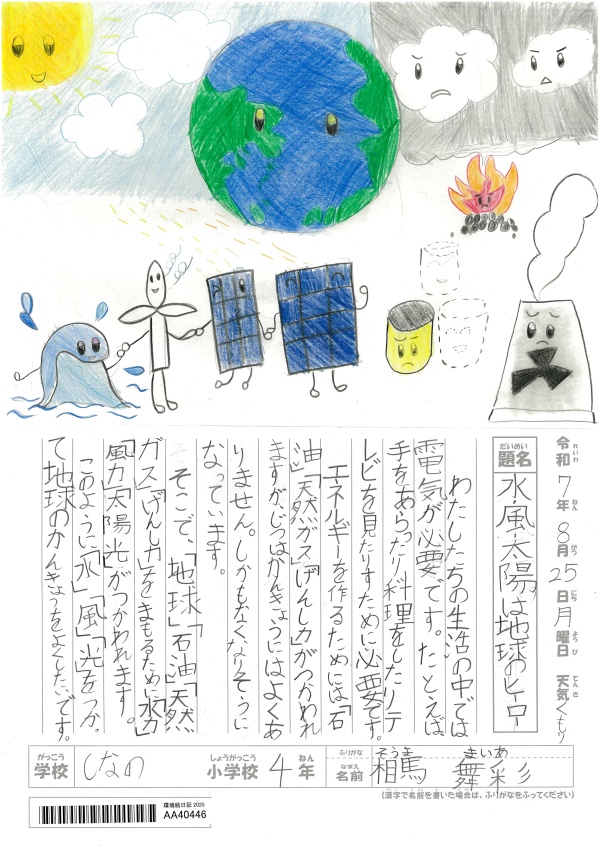 令和7年8月25日月曜日 天気くもり
れいわ ねん がつ にち ようび てんき
だいめい
題名 水・風・太陽は地球のヒーロー
わたしたちの生活の中では
電気が必要です。たとえば、
手をあらったり料理をしたりテ
レビを見たりするために必要です。
エネルギーを作るためには「石
油」「天然ガス」「げんし力」がつかわれ
ますが、じつはかんきょうにはよくあ
りません。しかもなくなりそうに
なっています。
そこで、「地球」「石油」「天然
ガス」「げんし力」をまもるために「水力」
「風力」「太陽光」がつかわれます。
このように「水」「風」「光」をつかっ
て地球のかんきょうをよくしたいです。
がっこう しょうがっこう ねん ふりがな そうま まいあ
学校 しなの 小学校 4年 なまえ 名前 相馬 舞彩
(漢字で名前を書いた場合は、ふりがなをふってください)
環境絵日記 2025
AA40446